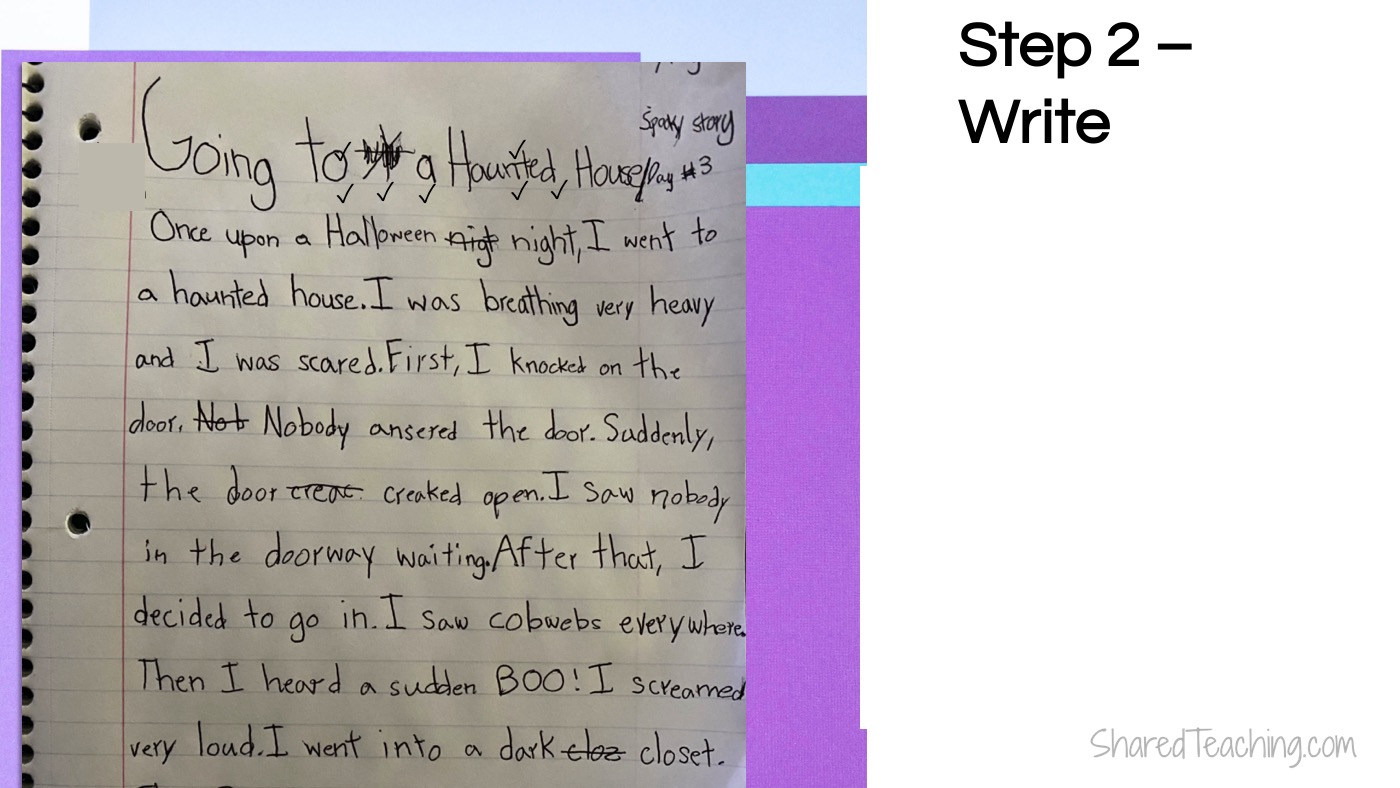 Step 2 –
Write
Spooky story
Going to a Haunted House/Day #3
Once upon a Halloween nigt night, I went to
a haunted house. I was breathing very heavy
and I was scared. First, I knocked on the
door. Not Nobody ansered the door. Suddenly,
the door creac creaked open. I saw nobody
in the doorway waiting. After that, I
decided to go in. I saw cobwebs everywhere.
Then I heard a sudden BOO! I screamed
very loud. I went into a dark cloz closet.
SharedTeaching.com